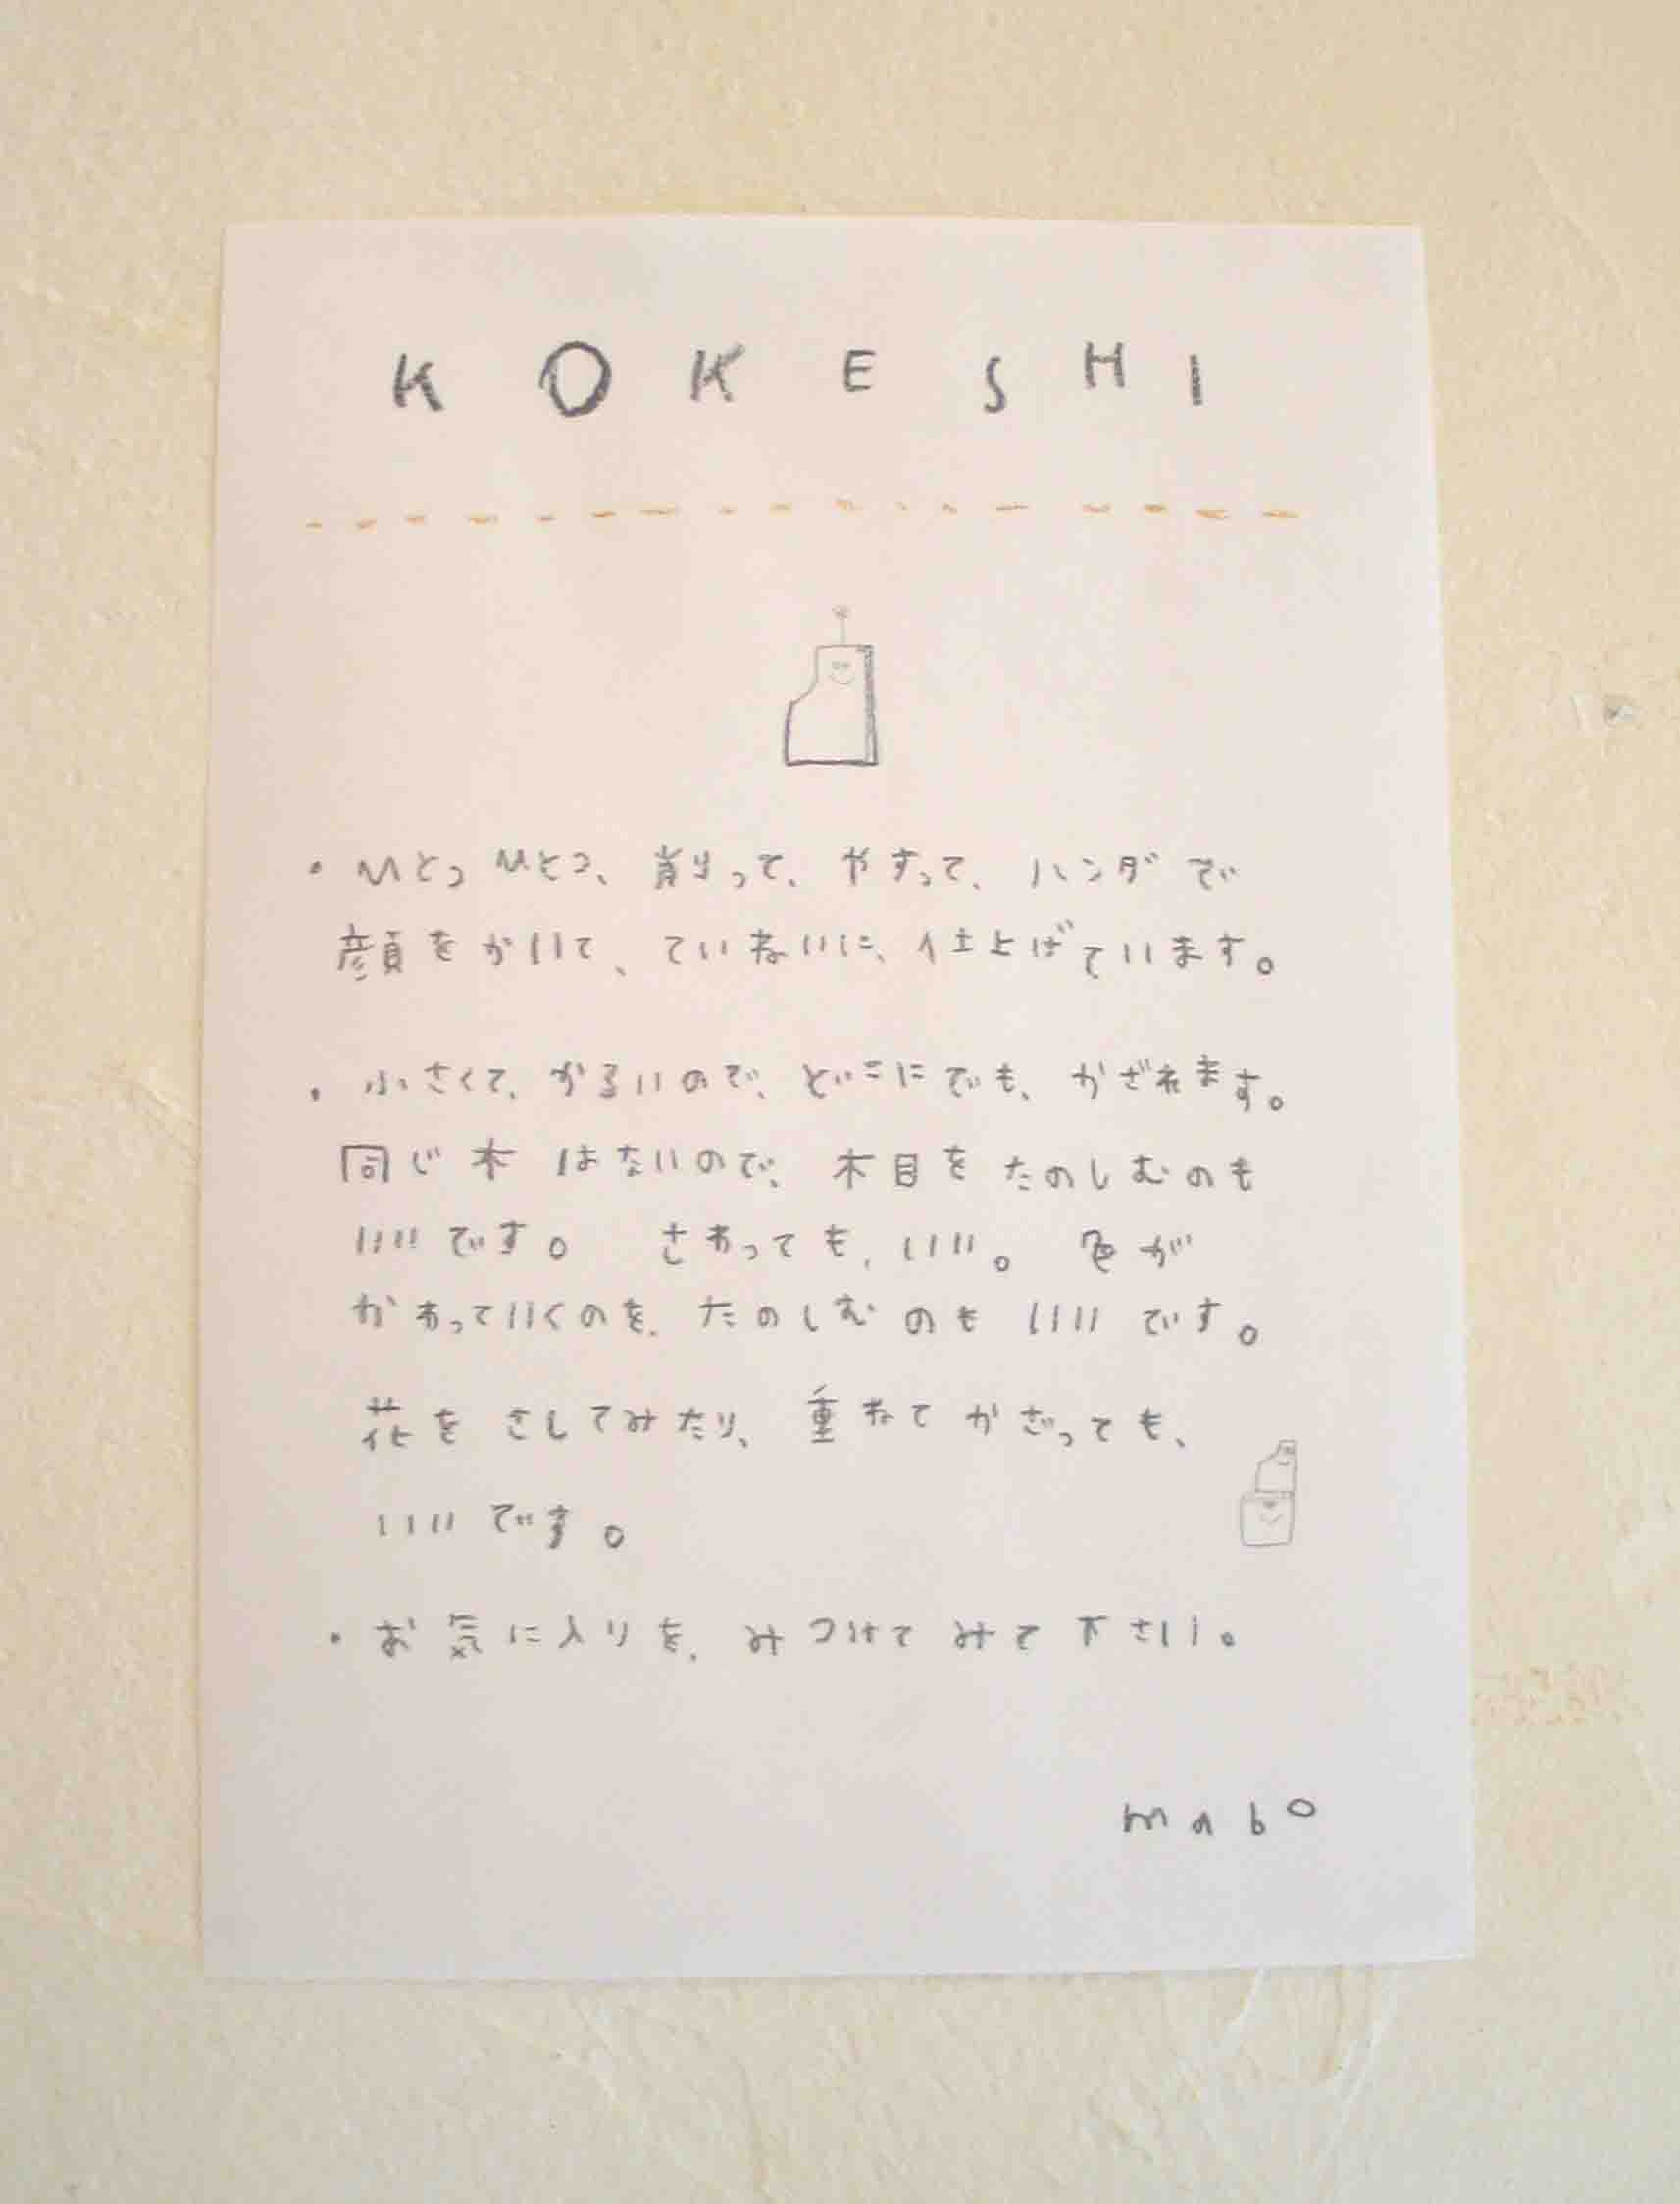 KOKESHI
・ひとつひとつ、削って、やすって、ハンダで
顔をかいて、ていねいに、仕上げています。
・小さくて、かるいので、どこにでも、かざれます。
同じ木はないので、木目をたのしむのも
いいです。 さわっても、いい。 色が
かわっていくのを、たのしむのもいいです。
花をさしてみたり、重ねてかざっても、
いいです。
・お気に入りを、みつけてみて下さい。
mabo